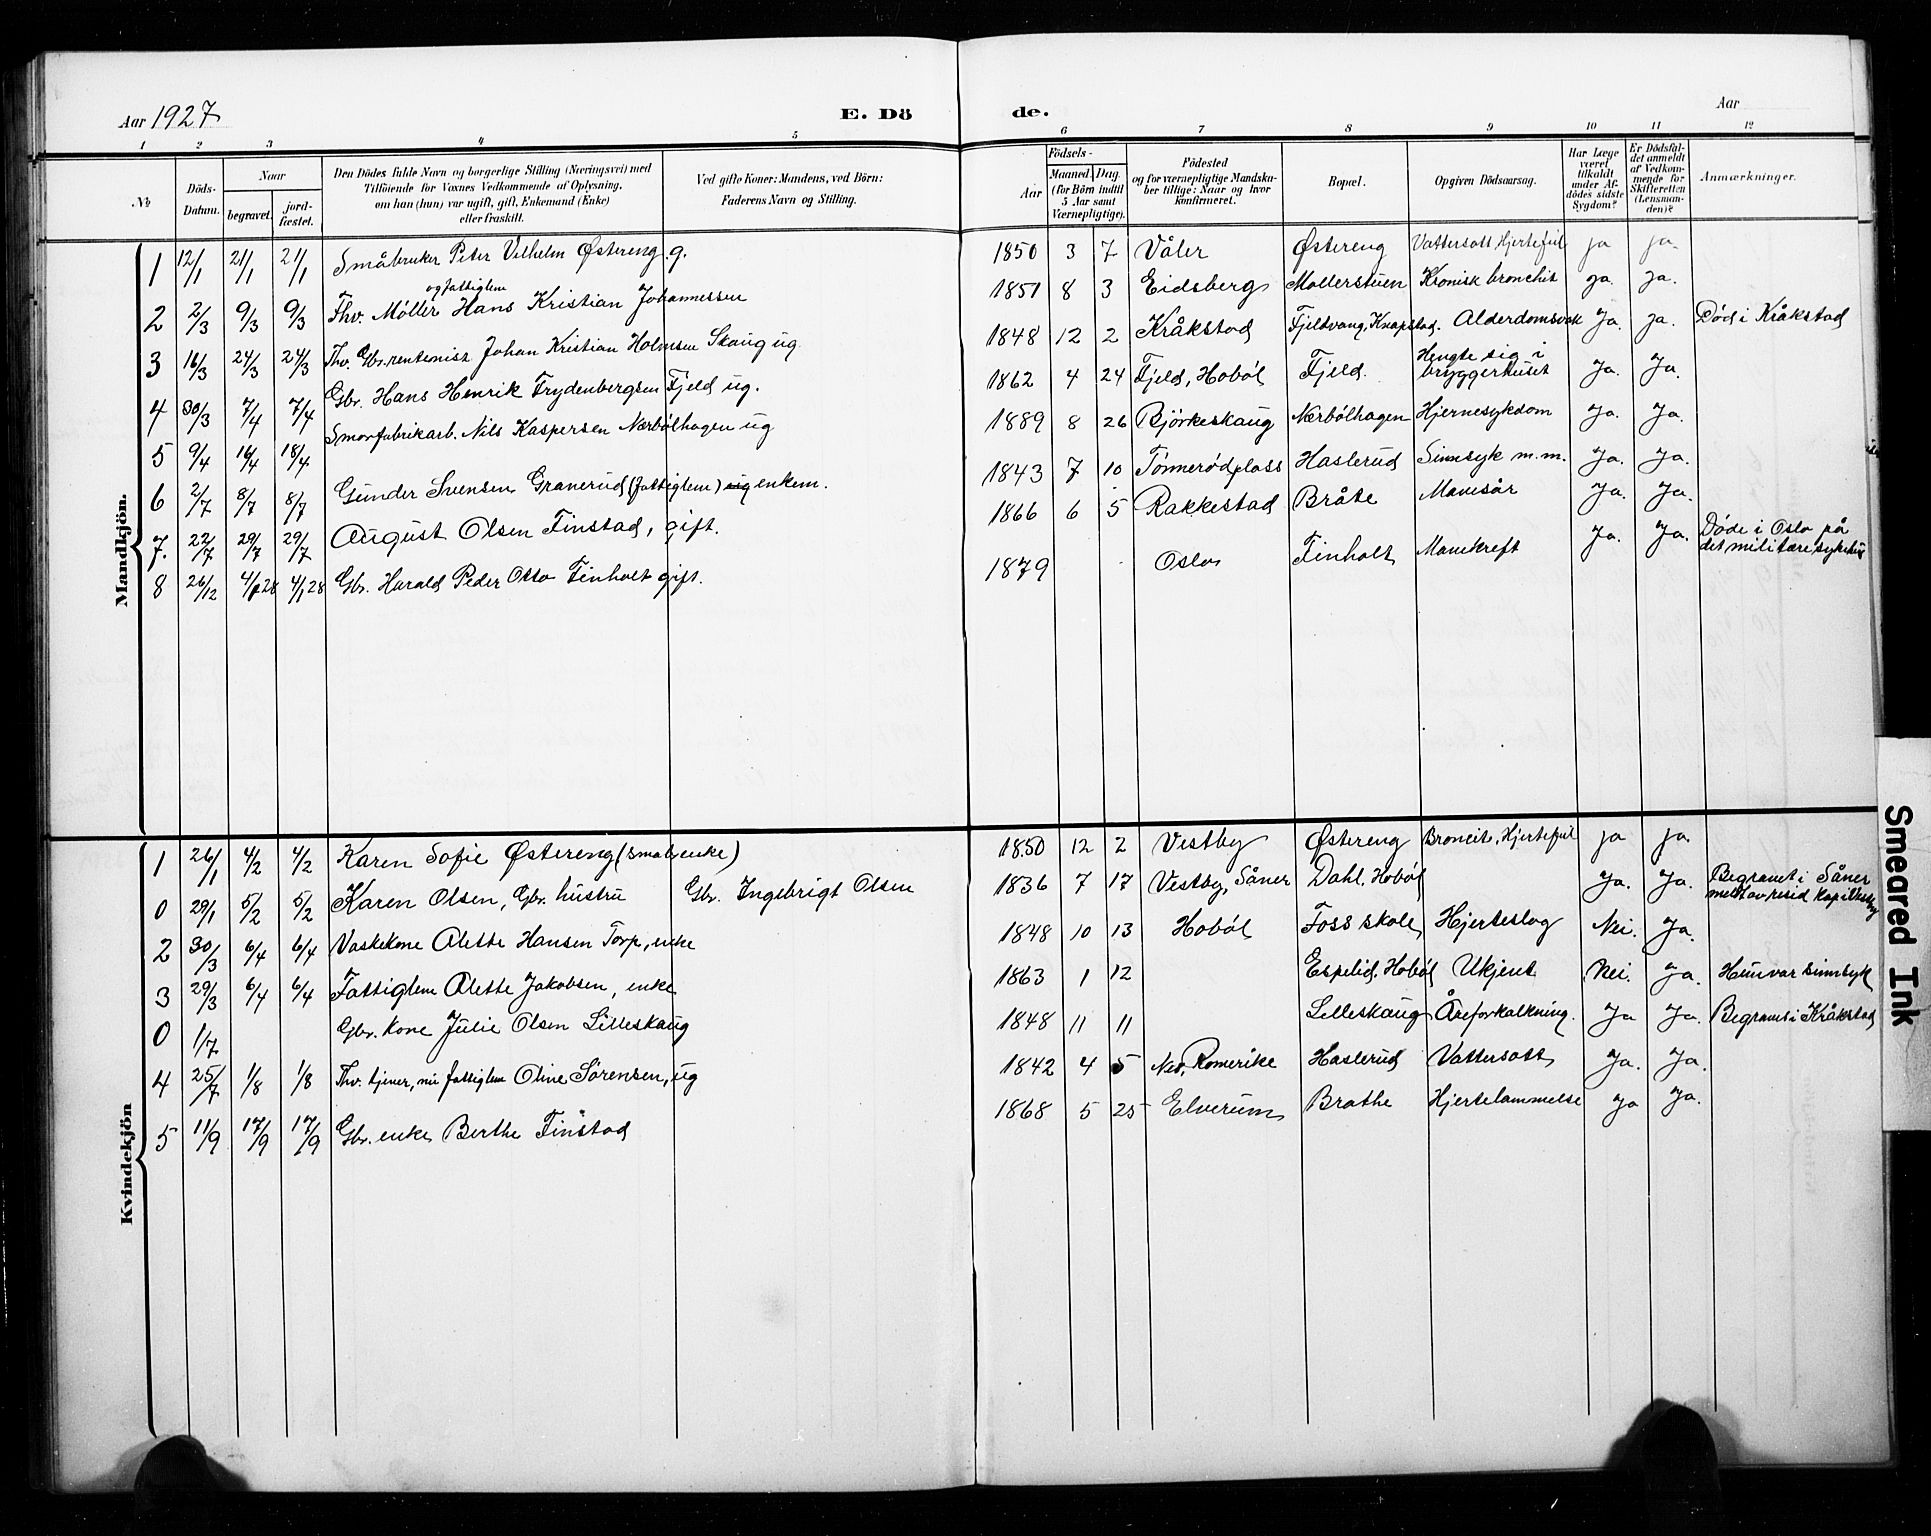 Aar 1927 E. Dö de. Aar
1 2 3 4 5 6 7 8 9 10 11 12
№ Döds-Datum. Naar begravet. jord-fæstet. Den Dödes fulde Navn og borgerlige Stilling (Næringsvei) med Tilföiende for Voxnes Vedkommende af Oplysning, om han (hun) var ugift, gift, Enkemand (Enke) eller fraskilt. Ved gifte Koner: Mandens, ved Börn: Faderens Navn og Stilling. Födsels- Aar Maaned Dag (for Börn indtil 5 Aar samt Værnepligtige). Födested og for værnepligtige Mandskaber tillige: Naar og hvor konfirmeret. Bopæl. Opgiven Dödsaarsag. Har Læge været tilkaldt under Afdödes sidste Sygdom? Er Dödsfaldet anmeldt af Vedkommende for Skifteretten (Lensmanden)? Anmærkninger.
Mandkjön.
1 12/1 21/1 21/1 Småbruker Peter Vilhelm Østereng g. 1850 3 7 Våler Østereng Vattersott, Hjertefeil ja ja.
2 2/3 9/3 9/3 Fhv. Møller og fattiglem Hans Kristian Johannessen 1851 8 3 Eidsberg Møllerstuen Kronisk bronchit ja. ja.
3 16/3 24/3 24/3 Fhv. Gbr. rentenist Johan Kristian Holmsen Skaug ug 1848 12 2 Kråkstad Fjeldvang, Knapstad. Alderdomsvak Ja. ja. Død i Kråkstad
4 30/3 7/4 7/4 Gbr. Hans Henrik Frydenbergsen Fjeld ug. 1862 4 24 Fjeld, Hobøl Fjeld. Hengte sig i bryggerhuset Ja. Ja.
5 9/4 16/4 18/4 Smørfabrikarb. Nils Kaspersen Nærbølhagen ug 1889 8 26 Bjørkeskaug Nærbølhagen Hjernesykdom Ja. Ja.
6 2/7 8/7 8/7 Gunder Svensen Granerud (fattiglem) ug enkem. 1843 7 10 Tønnerødplass Haslerud Sinnsyk m.m. Ja. Ja.
7. 22/7 29/7 29/7 August Olsen Finstad, gift. 1866 6 5 Rakkestad Bråte Mavesår Ja. Ja.
8 26/12 4/1 28 4/1 28 Gbr. Harald Peder Otto Finholt gift. 1879 Oslo Finholt Mavekreft Ja. Ja. Døde i Oslo på det militære sykehus
Kvindekjön
1 26/1 4/2 4/2 Karen Sofie Østereng (småbr. enke) 1850 12 2 Vestby Østereng Broncit, Hjertefeil ja ja.
0 29/1 5/2 5/2 Karen Olsen, Gbr. hustru Gbr. Ingebrigt Olsen 1836 7 17 Vestby, Såner Dahl, Hobøl Ja. Ja. Begravet i Såner meldt av resid. kap.
2 30/3 6/4 6/4 Vaskekone Alette Hansen Torp, enke 1848 10 13 Hobøl Foss skole Hjerteslag Nei. Ja.
3 29/3 6/4 6/4 Fattiglem Alette Jakobsen, enke 1863 1 12 Espelid, Hobøl Ukjent Nei. Ja. Hun var sinnsyk
0 1/7 Gbr. kone Julie Olsen Lilleskaug 1848 11 11 Lilleskaug Åreforkalkning. Ja Ja. Begraves i Kråkstad
4 25/7 1/8 1/8 Fhv. tjener, nu fattiglem Oline Sørensen, ug 1842 4 5 Ned. Romerike Haslerud Vattersott Ja. Ja.
5 11/9 17/9 17/9 Gbr. enke Berthe Finstad 1868 5 25 Elverum Brathe Hjertelammelse Ja Ja.
Smeared Ink